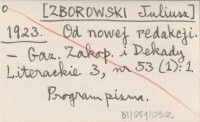 [ZBOROWSKI Juliusz]
1923. Od nowej redakcji.
- Gaz. Zakop. i Dekady
Literackie 3, nr 53 (1):1
Program pisma.